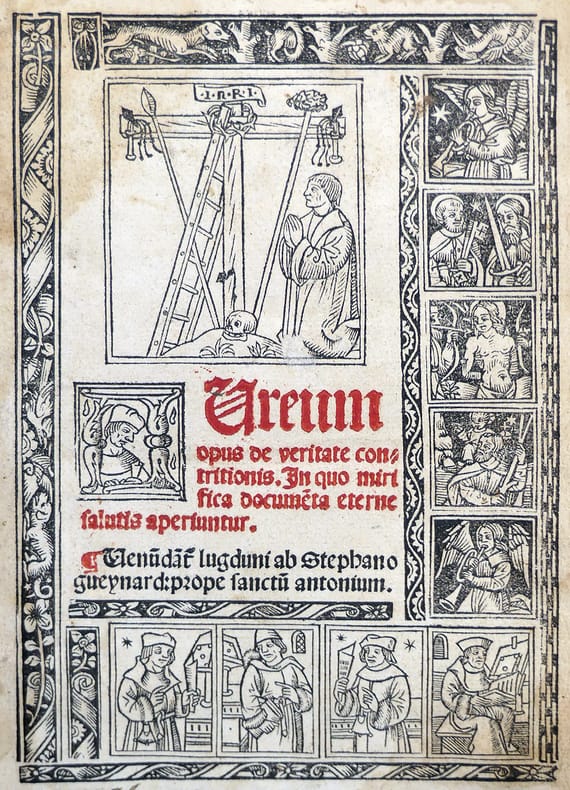 ·I·N·R·I·
Ureum
opus de veritate con⸗
tritionis. In quo miri
fica documēta eterne
salutis aperiuntur.
¶ Uenūdāt̄ lugduni ab Stephano
gueynard: prope sanctū antonium.